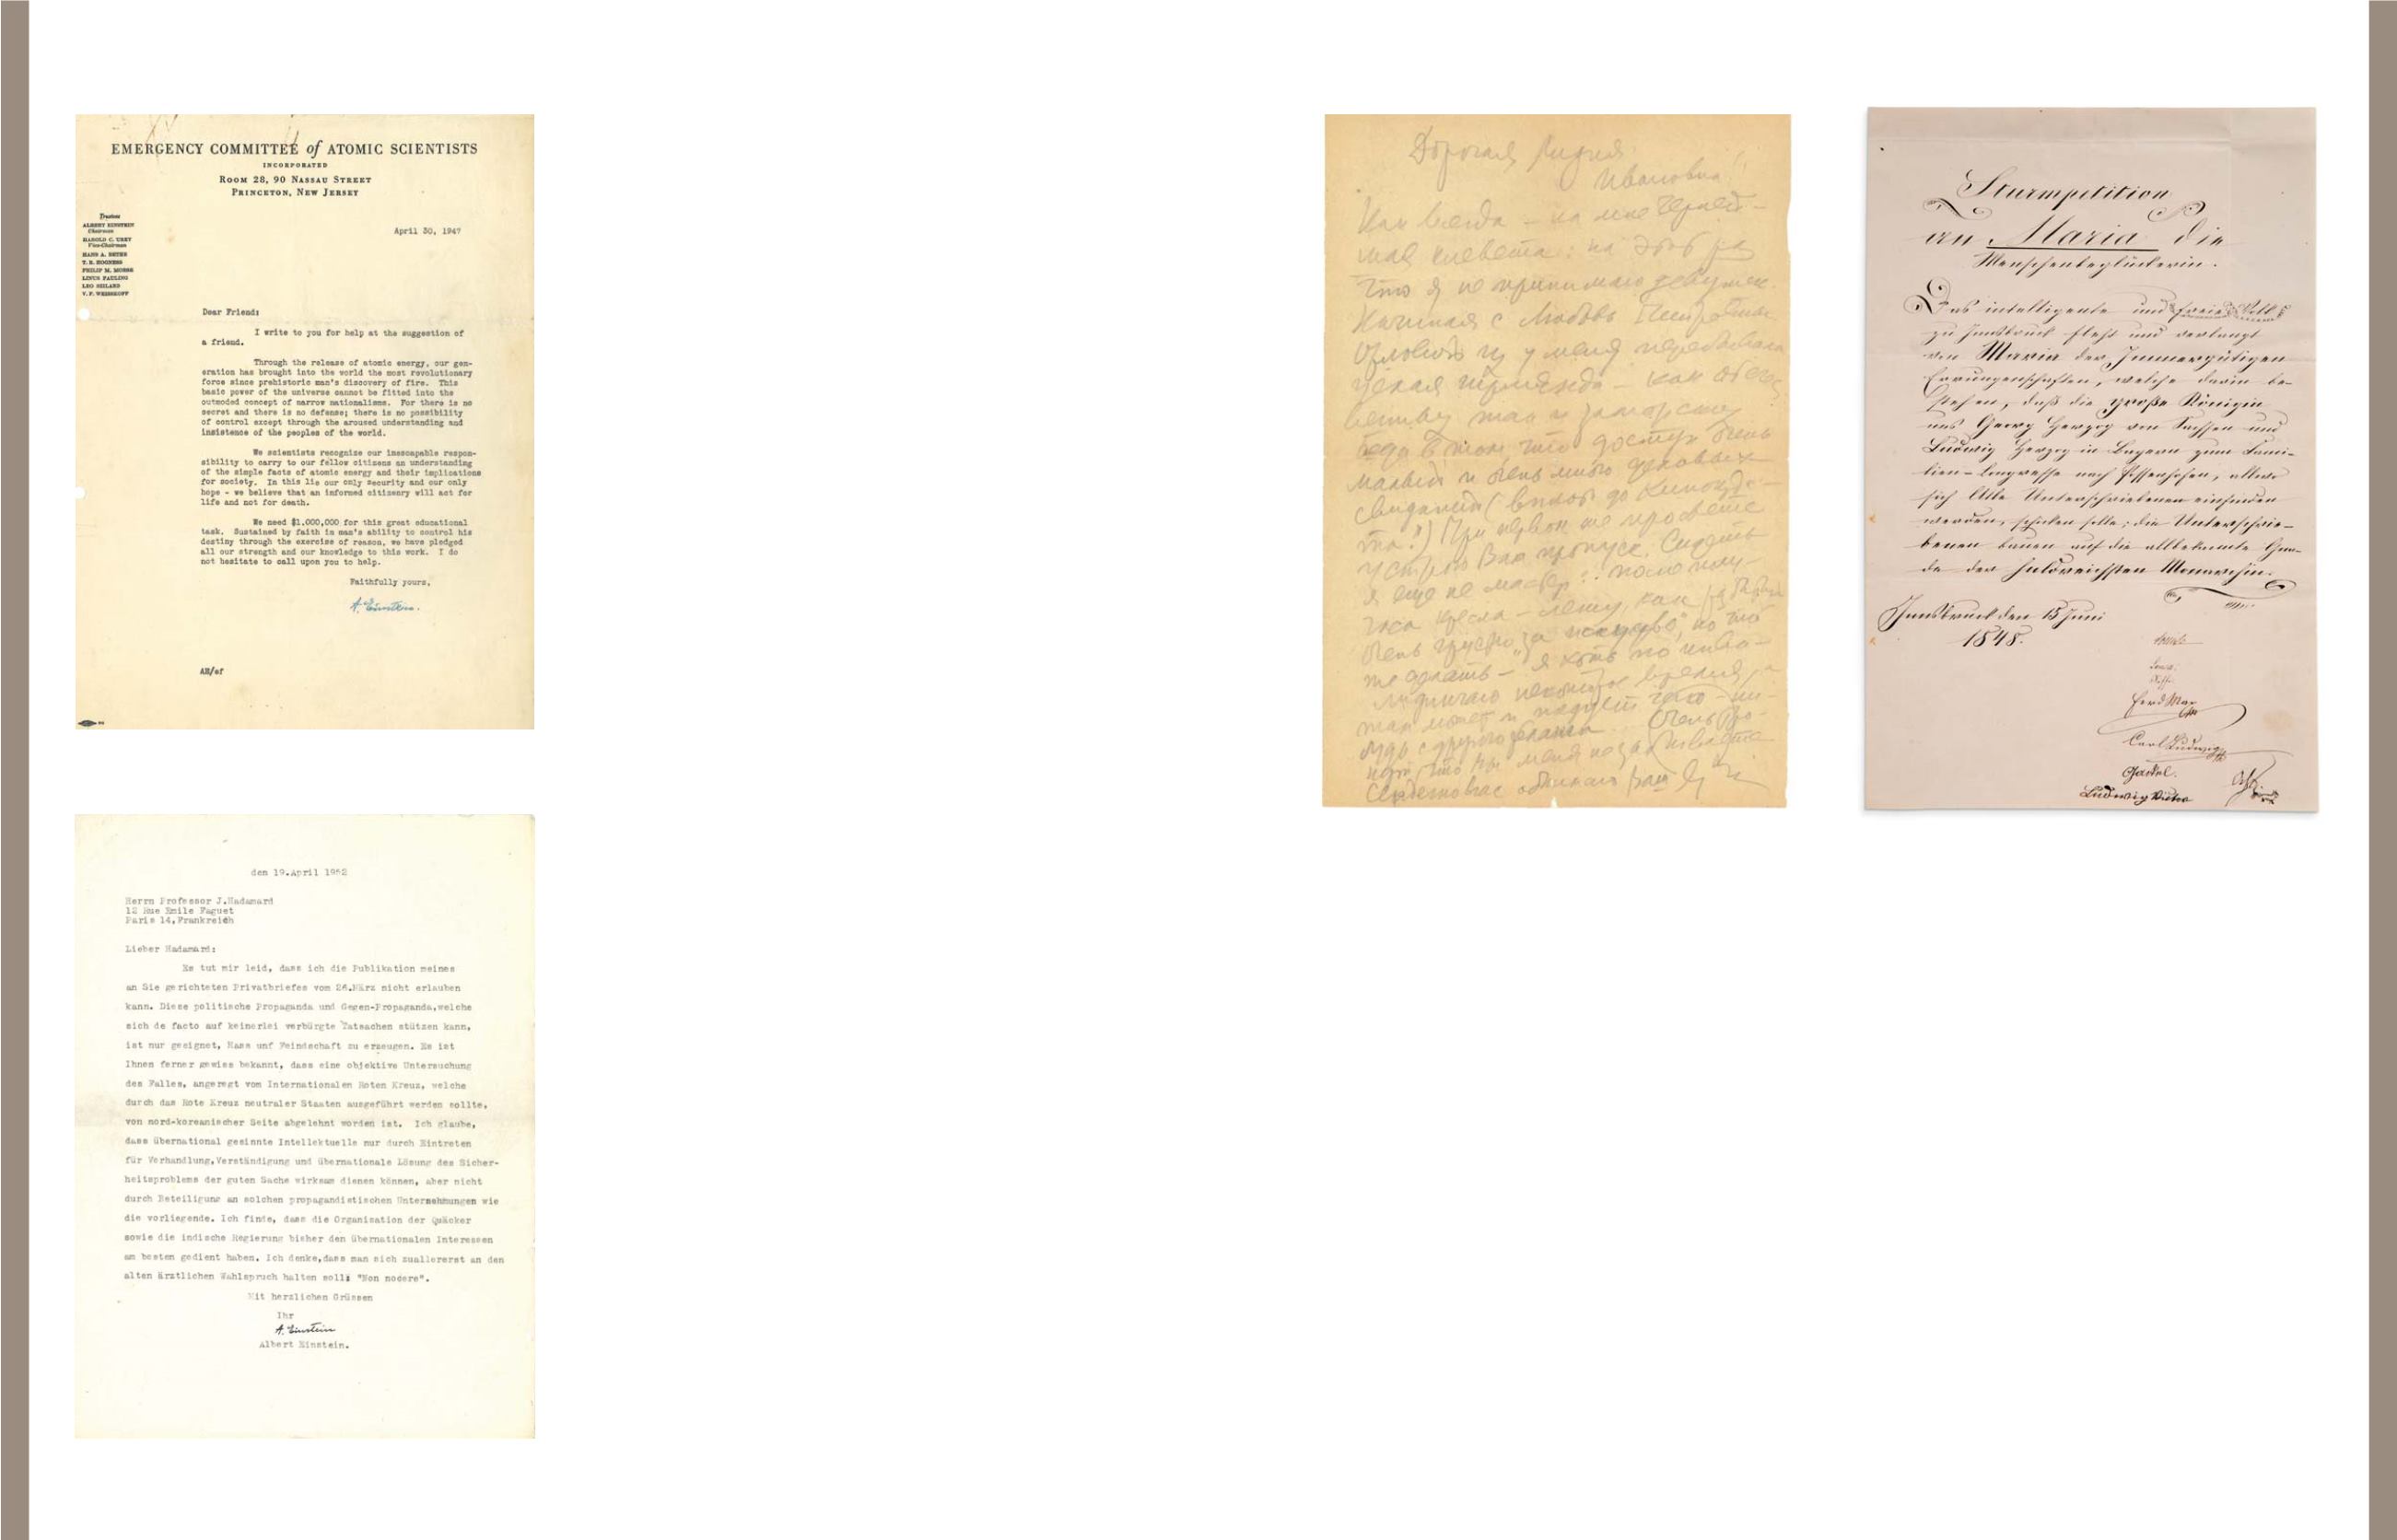 EMERGENCY COMMITTEE of ATOMIC SCIENTISTS
INCORPORATED
ROOM 28, 90 NASSAU STREET
PRINCETON, NEW JERSEY
Trustees
ALBERT EINSTEIN
Chairman
HAROLD C. UREY
Vice-Chairman
HANS A. BETHE
T. R. HOGNESS
PHILIP M. MORSE
LINUS PAULING
LEO SZILARD
V. F. WEISSKOPF
April 30, 1947
Dear Friend:
I write to you for help at the suggestion of
a friend.
Through the release of atomic energy, our gen-
eration has brought into the world the most revolutionary
force since prehistoric man's discovery of fire. This
basic power of the universe cannot be fitted into the
outmoded concept of narrow nationalisms. For there is no
secret and there is no defense; there is no possibility
of control except through the aroused understanding and
insistence of the peoples of the world.
We scientists recognize our inescapable respon-
sibility to carry to our fellow citizens an understanding
of the simple facts of atomic energy and their implications
for society. In this lie our only security and our only
hope - we believe that an informed citizenry will act for
life and not for death.
We need $1,000,000 for this great educational
task. Sustained by faith in man's ability to control his
destiny through the exercise of reason, we have pledged
all our strength and our knowledge to this work. I do
not hesitate to call upon you to help.
Faithfully yours,
A. Einstein.
AE/ef
den 19.April 1952
Herrn Professor J.Hadamard
12 Rue Emile Faguet
Paris 14,Frankreich
Lieber Hadamard:
Es tut mir leid, dass ich die Publikation meines
an Sie gerichteten Privatbriefes vom 26.März nicht erlauben
kann. Diese politische Propaganda und Gegen-Propaganda,welche
sich de facto auf keinerlei verbürgte Tatsachen stützen kann,
ist nur geeignet, Hass unf Feindschaft zu erzeugen. Es ist
Ihnen ferner gewiss bekannt, dass eine objektive Untersuchung
des Falles, angeregt vom Internationalen Roten Kreuz, welche
durch das Rote Kreuz neutraler Staaten ausgeführt werden sollte,
von nord-koreanischer Seite abgelehnt worden ist. Ich glaube,
dass übernational gesinnte Intellektuelle nur durch Eintreten
für Verhandlung,Verständigung und übernationale Lösung des Sicher-
heitsproblems der guten Sache wirksam dienen können, aber nicht
durch Beteiligung an solchen propagandistischen Unternehmungen wie
die vorliegende. Ich finde, dass die Organisation der Quäcker
sowie die indische Regierung bisher den übernationalen Interessen
am besten gedient haben. Ich denke,dass man sich zuallererst an den
alten ärztlichen Wahlspruch halten soll: "Non nocere".
Mit herzlichen Grüssen
Ihr
A. Einstein
Albert Einstein.
Дорогая Лидия
Ивановна!
Как всегда – на меня
клевета: на этот раз
что я не принимаю девушек.
Начиная с Любовь Петровны
Орловой их у меня перебывала
целая – как
так и
Беда в том, что доступ очень
малый и очень много деловых
свиданий (вплоть до
При первом же просвете
устрою Вам пропуск. Сидеть
я еще не мастер: после полу-
часа кресла – лежу, как
очень грустно но что
же делать – я хоть по
некоторое время, а
там может и чего-ни-
будь с другого
что Вы меня не забываете
обнимаю Ваш
Sturmpetition
an Maria die
Menschenbeglückerin.
Das intelligente und freie Volk
zu Innsbruck fleht und verlangt
von Maria der Immergütigen
Errungenschaften, welche darin be-
stehen, daß die große Königin
uns Georg Herzog von Sachsen und
Ludwig Herzog in Bayern zum Fami-
lien-Congresse nach Possenhofen, allwo
sich Alle Unterschriebenen einfinden
werden, schicken solle; die Unterschrie-
benen bauen auf die allbekannte Gna-
de der huldreichsten Monarchin.
Innsbruck den 15 Juni
1848.
Ferd Max
Carl Ludwig
Ludwig Victor